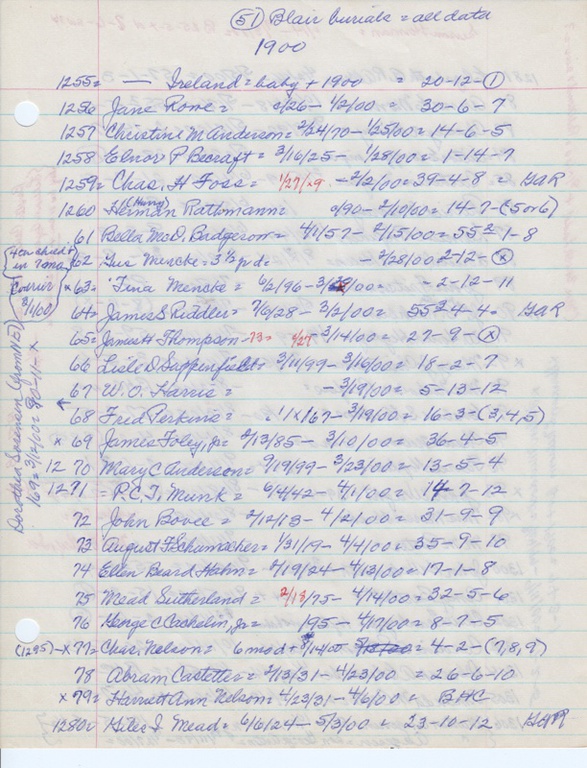 (51) Blair burials = all data
1900
1255 = — Ireland = baby + 1900 = 20-12-(1)
1256 Jane Rowe = 2/26 - 1/2/00 = 30-6-7
1257 Christine M Anderson = 2/24/70 - 1/25/00 = 14-6-5
1258 Elnor P Becraft = 3/16/25 - 1/28/00 = 1-14-7
1259 = Chas. H Foss = 1/27/29 - 2/2/00 = 39-4-8 = GAR
1260 Herman (Harry) Rathmann = 0/90 - 2/10/00 = 14-7-(5 or 6)
61 Bella McD. Badgerow = 4/1/57 - 2/15/00 = 55 2 1-8
4 on child in 1 ma
62 Gus Mencke = 3 1/2 y d = - 2/28/00 2-12-(x)
Courier 3/1/00
x 63 = Tina Mencke = 6/2/96 - 00 = - 2-12-11
64 = James S Riddler = 7/6/28 - 3/2/00 = 55 2-4-4. GAR
65 = James H Thompson -73 = 1/27 - 3/14/00 = 27-9-(x)
66 Lisle D Sappenfield = 3/11/99 - 3/16/00 = 18-2-7
67 W.O. Harris = - 3/19/00 = 5-13-12
68 Fred Perkins = 11 x 167 - 3/19/00 = 16-3-(3,4,5)
x 69 James Foley, Jr = 2/13/85 - 3/10/00 = 36-4-5
1270 Mary C Anderson = 9/19/99 - 3/23/00 = 13-5-4
1271 = P.C.T. Munk = 6/4/42 - 4/1/00 = 14-7-12
72 John Bovee = 2/12/13 - 4/2/00 = 31-9-9
73 August F Schumacher = 1/31/19 - 4/4/00 = 35-9-10
74 Ellen Beard Hahn = 2/19/24 - 4/13/00 = 17-1-8
75 Mead Sutherland = 2/18/75 - 4/14/00 = 32-5-6
76 George C Cachelin, Jr = 195 - 4/17/00 = 8-7-5
(1295) - x 77 = Chas. Nelson = 6 mo d + 8/14/00 = 4-2-(7,8,9)
78 Abram Castetter = 2/13/31 - 4/23/00 = 26-6-10
x 79 = Harriett Ann Nelson = 4/23/31 - 4/6/00 = BHC
1280 = Giles I Mead = 6/6/24 - 5/3/00 = 23-10-12 GAR
Dorothea Sorensen (from 115)
169 = 3/12/00 = 90-11-x